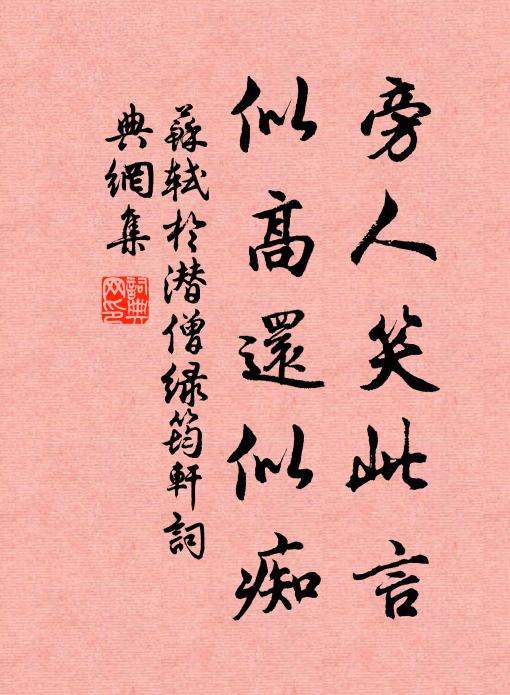 旁人笑此言
似高還似痴
蘇軾於潛僧绿筠軒詞
典網集
詞典網印